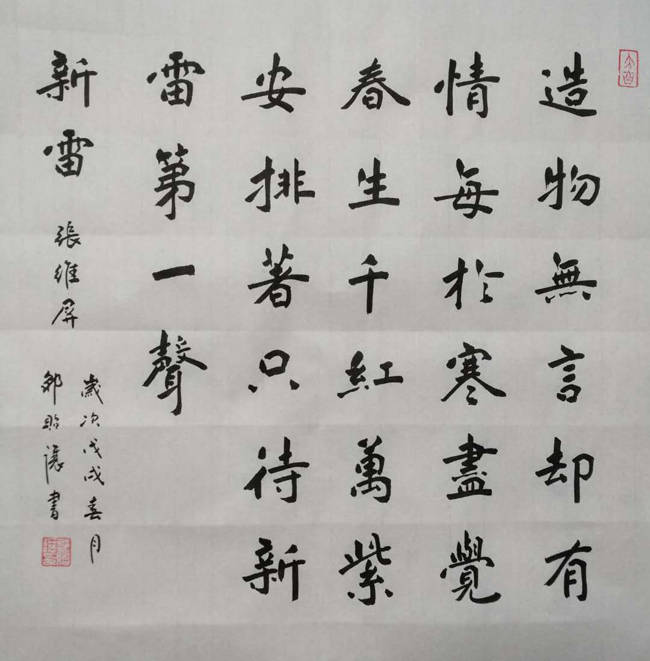 造物無言却有
情每於寒盡覺
春生千紅萬紫
安排著只待新
雷第一聲
新雷 張維屏
歲次戊戌春月
鄒 書